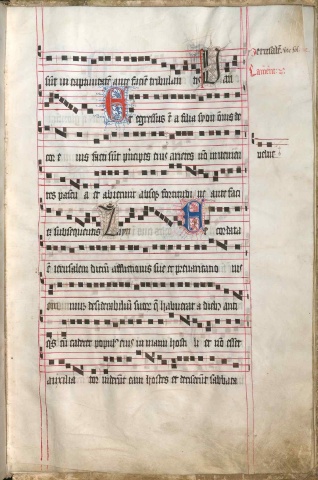 sūt in captiuitatē ante faciē tribulan tis V au
E t egressus ē a filia syon om̄is de
cor e ius facti sūt p̄ncipes eius arietes nō inuenien
tes pascu a et abierunt absq̄ fortitudi ne ante faci
ē subsequentis Zayn R e cordata
ē ierusalem dierū afflictionis sue et preuaricatio nis
omniuz desiderabiliū suoꝝ q̄ habuerat a dieb⁹ anti
q̄s cū caderet popul⁹ eius in manu hosti li et nō esset
auxilia tor uiderūt eam hostes et deriserūt sabbata